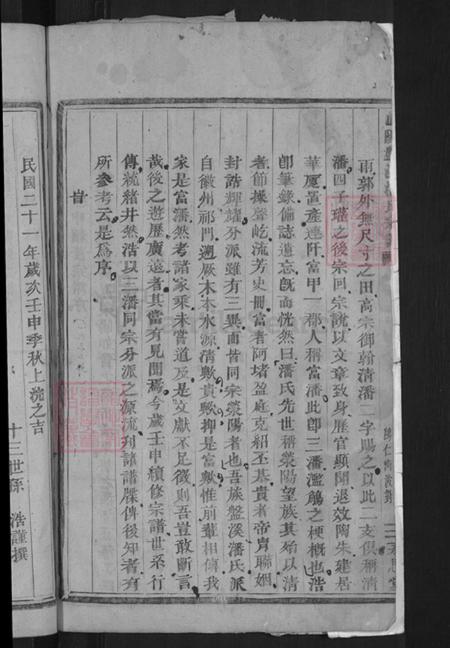 而郭外無尺寸之田高宗御翰清潘二字賜之以此二支俱稱清
潘四子瑠之後宗回宗說以文章致身歷官顯閎退效陶朱建居
華厦置產連阡富甲一郡人稱富潘此卽三潘濫觴之梗概也浩
卽筆錄備誌遺忘旣而恍然曰潘氏先世稱滎陽望族其始以清
者節操聲屹流芳史冊富者阿堵盈庭克紹丕基貴者帝冑聯姻
封誥輝謠分派雖有三異而皆同宗滎陽者也吾族盤溪潘氏派
自徽州祁門遡厥本本水源清歟貴歟抑是富歟惟前輩相傳我
家是富潘然考諸家乘未嘗道及是文獻不足徵則吾豈敢斷言
哉後之遊歷廣遠者其當有見聞焉今歲壬申續修宗譜世系行
傳統緒井然浩以三潘同宗分派之源流列諸譜牒俾後知者有
所參考云是爲序
旹
民國二十一年歲次壬申季秋上浣之吉
十三世孫 浩謹撰